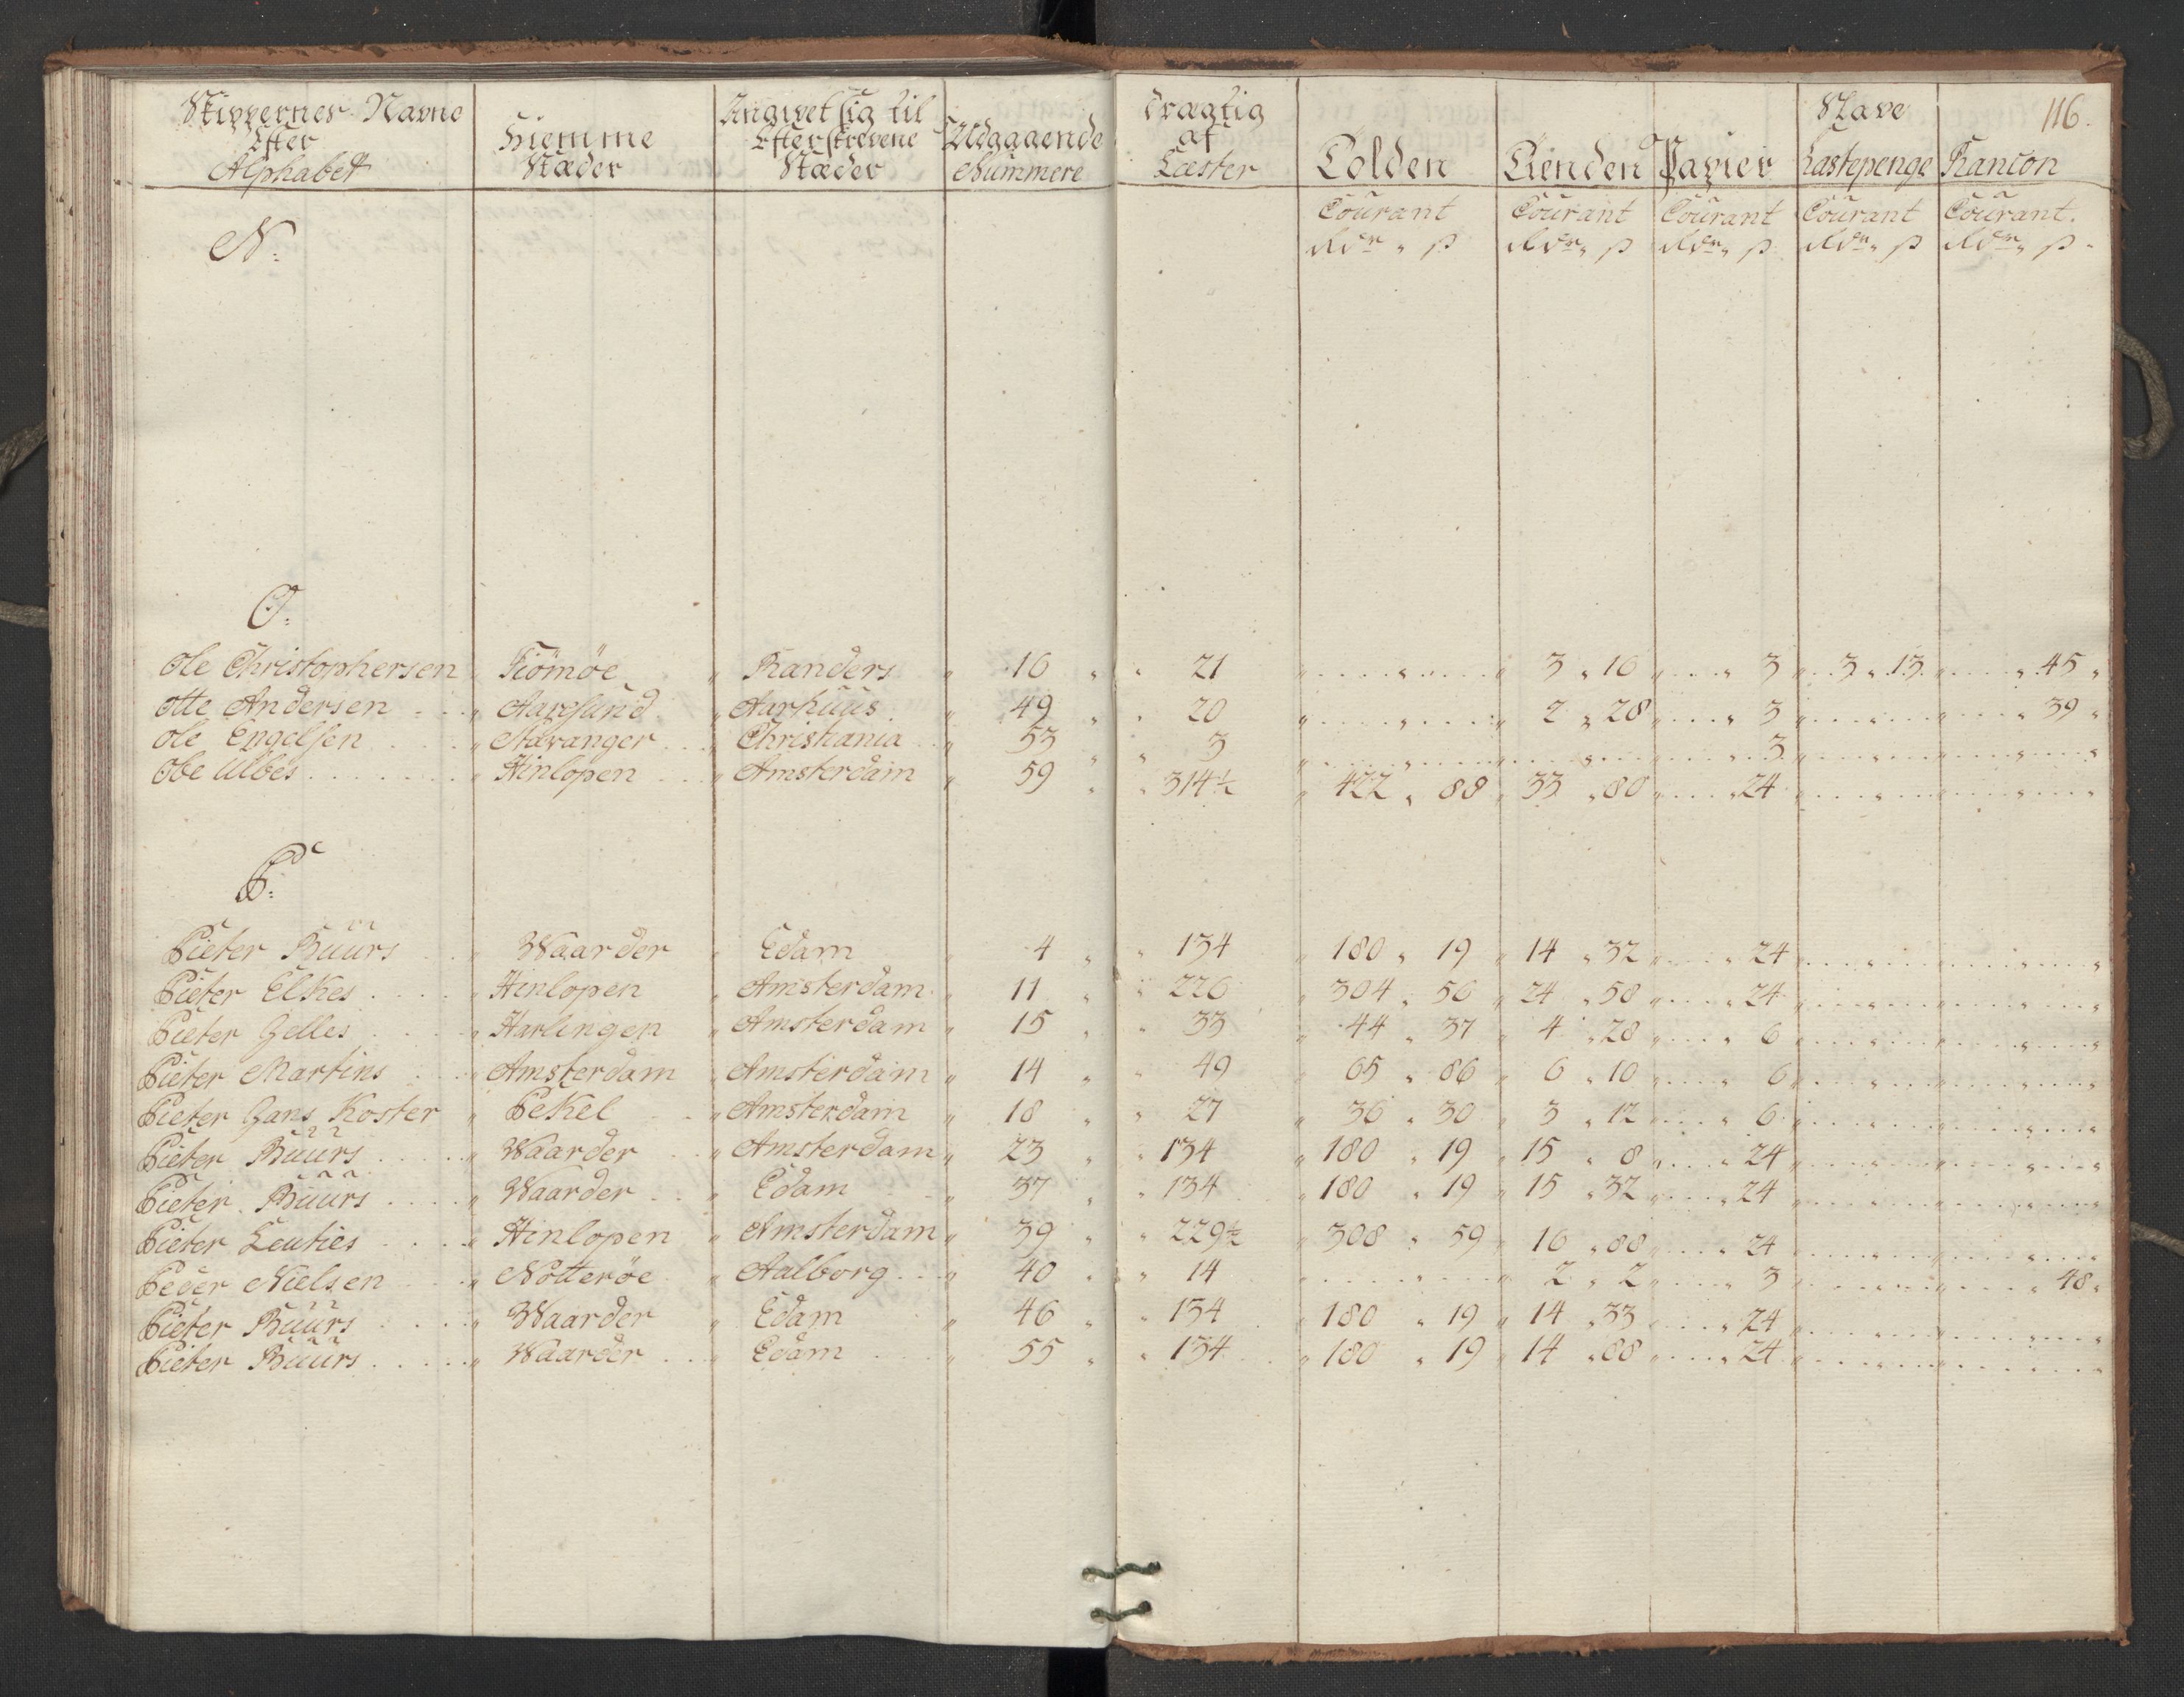 Skippernes Navne Efter Alphabet | Hiemme Stæder | Angivet sig til Efterskrevene Stæder | Udgaaende Nummere | Drægtig af Læster | Tolden | Tienden | Papier | Slave Lastepenge | Rancon | 116.
Courant | Courant | Courant | Courant | Courant.
Rdr „ ß | Rdr „ ß | Rdr „ ß | Rdr „ ß | Rdr „ ß
N:
O:
Ole Christophersen „ Tiömöe „ Randers „ 16 „ „ 21 „ „ „ 3 „ 16 „ „ 3 „ 3 „ 13 „ „ 45 „
Otte Andersen „ Aaresund „ Aarhuus „ 49 „ „ 20 „ „ „ 2 „ 28 „ „ 3 „ „ „ „ 39 „
Ole Engelsen „ Stavanger „ Christiania „ 53 „ „ 3 „ „ „ „ „ 3 „ „ „ „
Obe Ulbes „ Hinlopen „ Amsterdam „ 59 „ „ 314½ „ 422 „ 88 „ 33 „ 80 „ „ 24 „ „ „ „
P:
Pieter Buurs „ Waarder „ Edam „ 4 „ „ 134 „ 180 „ 19 „ 14 „ 32 „ „ 24 „ „ „ „
Pieter Elkes „ Hinlopen „ Amsterdam „ 11 „ „ 226 „ 304 „ 56 „ 24 „ 58 „ „ 24 „ „ „ „
Pieter Gelles „ Harlingen „ Amsterdam „ 15 „ „ 33 „ 44 „ 37 „ 4 „ 28 „ „ 6 „ „ „ „
Pieter Martins „ Amsterdam „ Amsterdam „ 14 „ „ 49 „ 65 „ 86 „ 6 „ 10 „ „ 6 „ „ „ „
Pieter Gans Koster „ Pekel „ Amsterdam „ 18 „ „ 27 „ 36 „ 30 „ 3 „ 12 „ „ 6 „ „ „ „
Pieter Buurs „ Waarder „ Amsterdam „ 23 „ „ 134 „ 180 „ 19 „ 15 „ 8 „ „ 24 „ „ „ „
Pieter Buurs „ Waarder „ Edam „ 37 „ „ 134 „ 180 „ 19 „ 15 „ 32 „ „ 24 „ „ „ „
Pieter Leuties „ Hinlopen „ Amsterdam „ 39 „ „ 229½ „ 308 „ 59 „ 16 „ 88 „ „ 24 „ „ „ „
Peder Nielsen „ Nötteröe „ Aalborg „ 40 „ „ 14 „ „ „ 2 „ 2 „ „ 3 „ „ „ „ 48 „
Pieter Buurs „ Waarder „ Edam „ 46 „ „ 134 „ 180 „ 19 „ 14 „ 33 „ „ 24 „ „ „ „
Pieter Buurs „ Waarder „ Edam „ 55 „ „ 134 „ 180 „ 19 „ 14 „ 88 „ „ 24 „ „ „ „